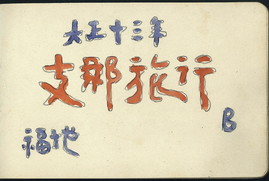 大正十三年
支那旅行
B
福地